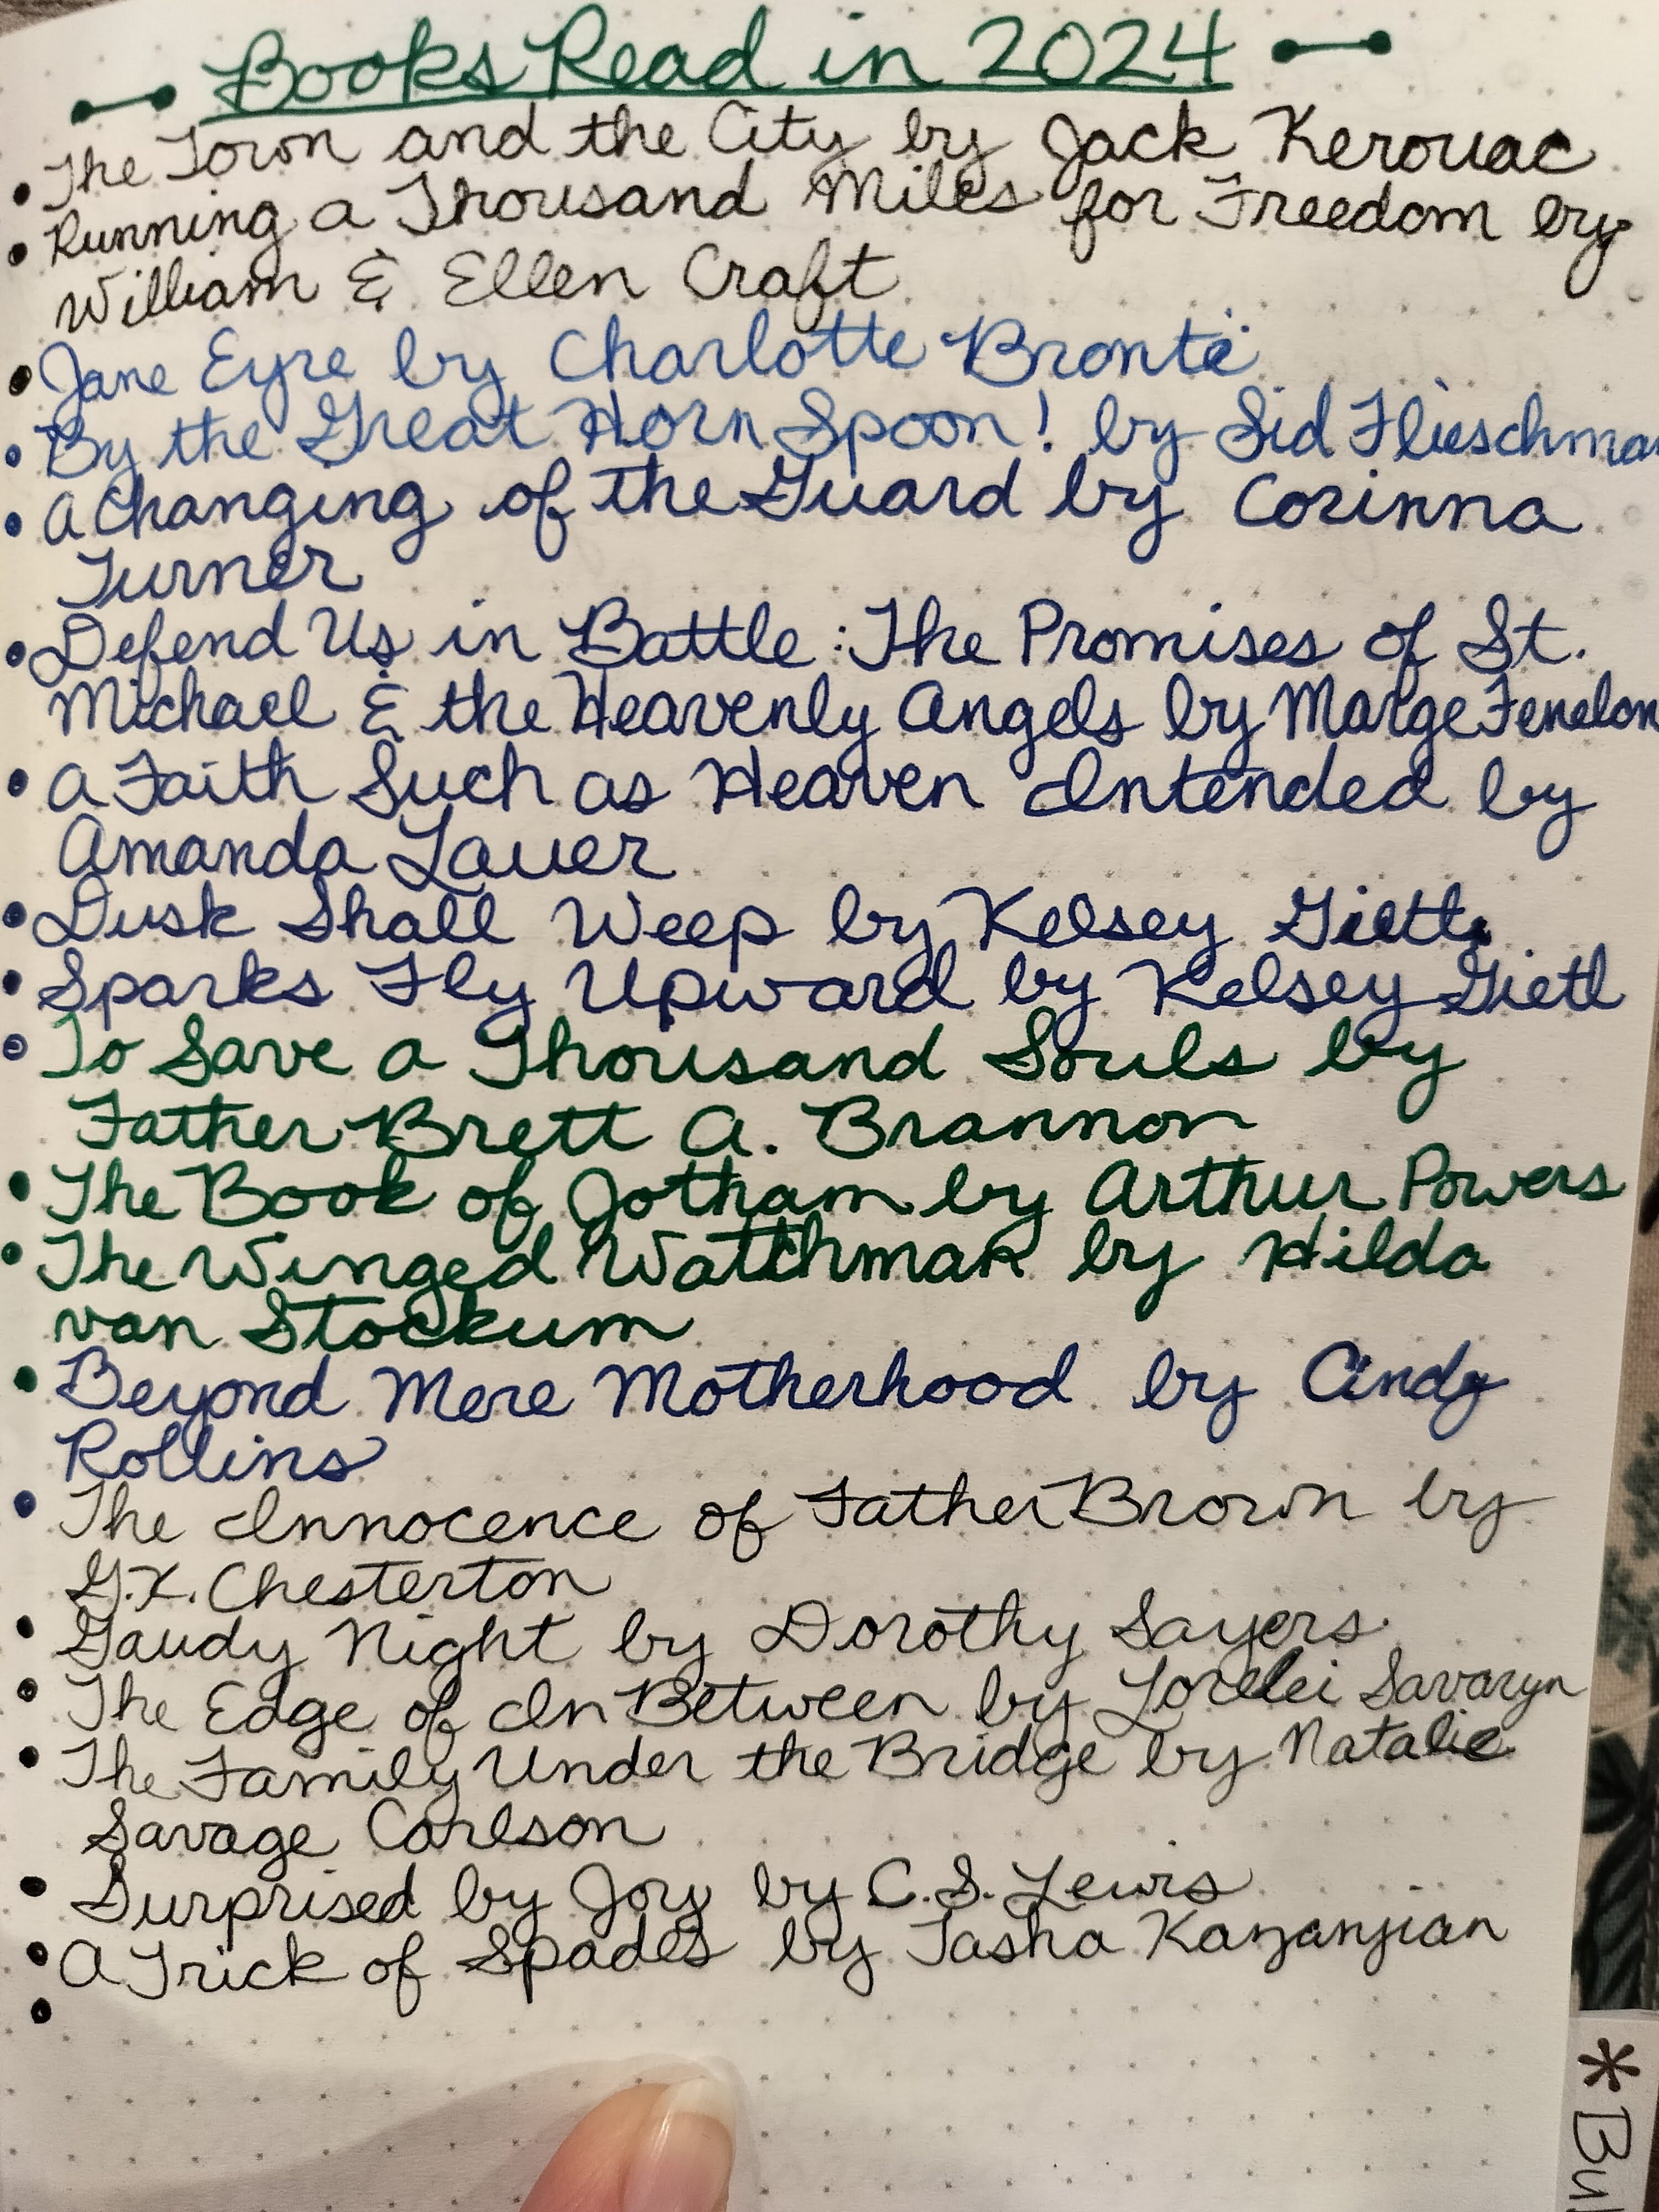 Books Read in 2024
The Town and the City by Jack Kerouac
Running a Thousand Miles for Freedom by
William & Ellen Craft
Jane Eyre by Charlotte Brontë
By the Great Horn Spoon! by Sid Flieschma
A Changing of the Guard by Corinna
Turner
Defend Us in Battle: The Promises of St.
Michael & the Heavenly Angels by Marge Fenelon
A Faith Such as Heaven Intended by
Amanda Lauer
Dusk Shall Weep by Kelsey Gietl
Sparks Fly Upward by Kelsey Gietl
To Save a Thousand Souls by
Father Brett A. Brannon
The Book of Jotham by Arthur Powers
The Winged Watchman by Hilda
van Stockum
Beyond Mere Motherhood by Cindy
Rollins
The Innocence of Father Brown by
G.K. Chesterton
Gaudy Night by Dorothy Sayers
The Edge of In Between by Lorelei Savaryn
The Family Under the Bridge by Natalie
Savage Carlson
Surprised by Joy by C.S. Lewis
A Trick of Spades by Tasha Kazanjian
*Bu